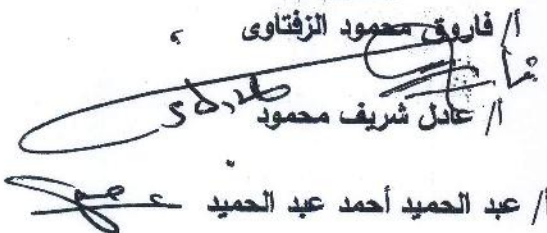 أ/ فاروق محمود الزفتاوى
أ/ عادل شريف محمود
أ/ عبد الحميد أحمد عبد الحميد